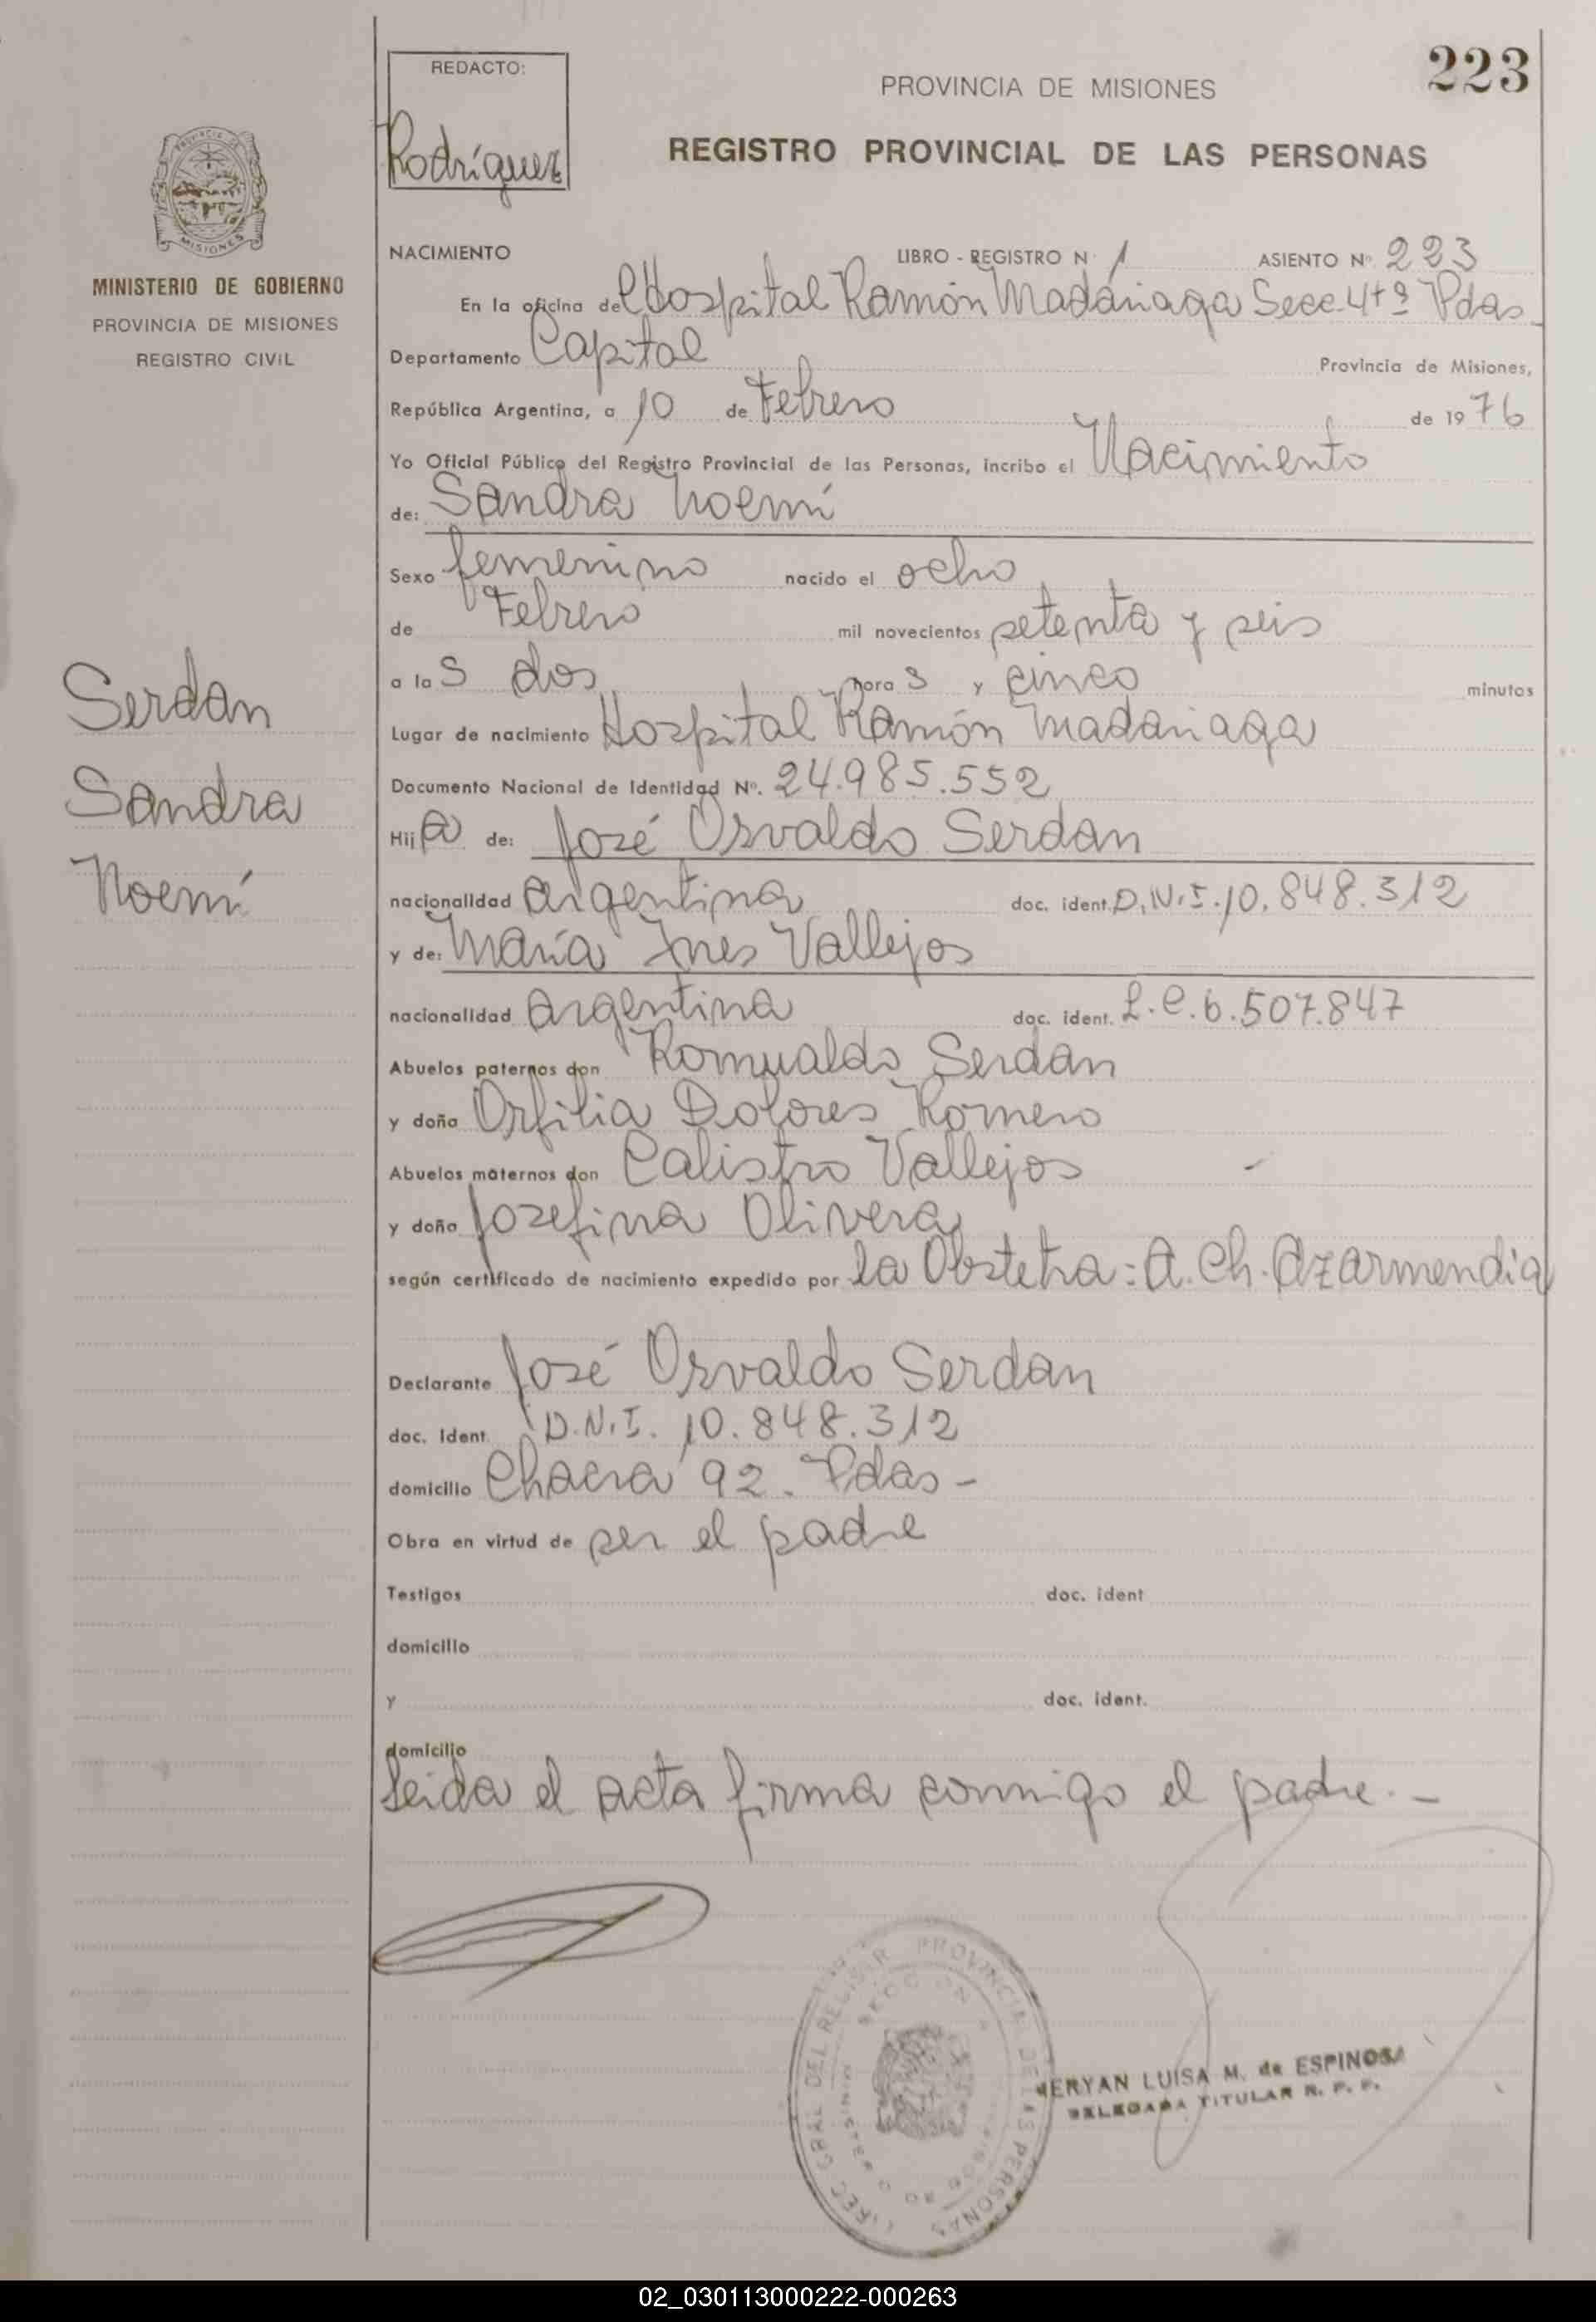 REDACTO:
Rodríguez
PROVINCIA DE MISIONES
223
REGISTRO PROVINCIAL DE LAS PERSONAS
MISIONES
MINISTERIO DE GOBIERNO
PROVINCIA DE MISIONES
REGISTRO CIVIL
NACIMIENTO LIBRO - REGISTRO N. 1 ASIENTO Nº. 223
En la oficina del Hospital Ramón Madariaga Secc. 4tª Pdas.
Departamento Capital Provincia de Misiones,
República Argentina, a 10 de Febrero de 1976
Yo Oficial Público del Registro Provincial de las Personas, incribo el Nacimiento
de: Sandra Noemí
Sexo femenino nacido el ocho
de Febrero mil novecientos setenta y seis
a las dos horas y cinco minutos
Lugar de nacimiento Hospital Ramón Madariaga
Documento Nacional de Identidad Nº. 24.985.552
Hija de: José Osvaldo Serdan
nacionalidad argentina doc. ident. D.N.I. 10.848.312
y de: María Ines Vallejos
nacionalidad argentina doc. ident. L.C. 6.507.847
Abuelos paternos don Romualdo Serdan
y doña Orfilia Dolores Romero
Abuelos maternos don Calistro Vallejos
y doña Josefina Olivera
según certificado de nacimiento expedido por la Obstetra: A. Ch. Azarmendia
Declarante José Osvaldo Serdan
doc. ident D.N.I. 10.848.312
domicilio Chacra 92. Pdas -
Obra en virtud de ser el padre
Testigos doc. ident
domicilio
y doc. ident.
domicilio
Leida el acta firma conmigo el padre. -
Serdan
Sandra
Noemí
PROVINCIAL DE LAS PERSONAS
LUISA M. de ESPINOSA
DELEGADA TITULAR R. P. P.
02_030113000222-000263